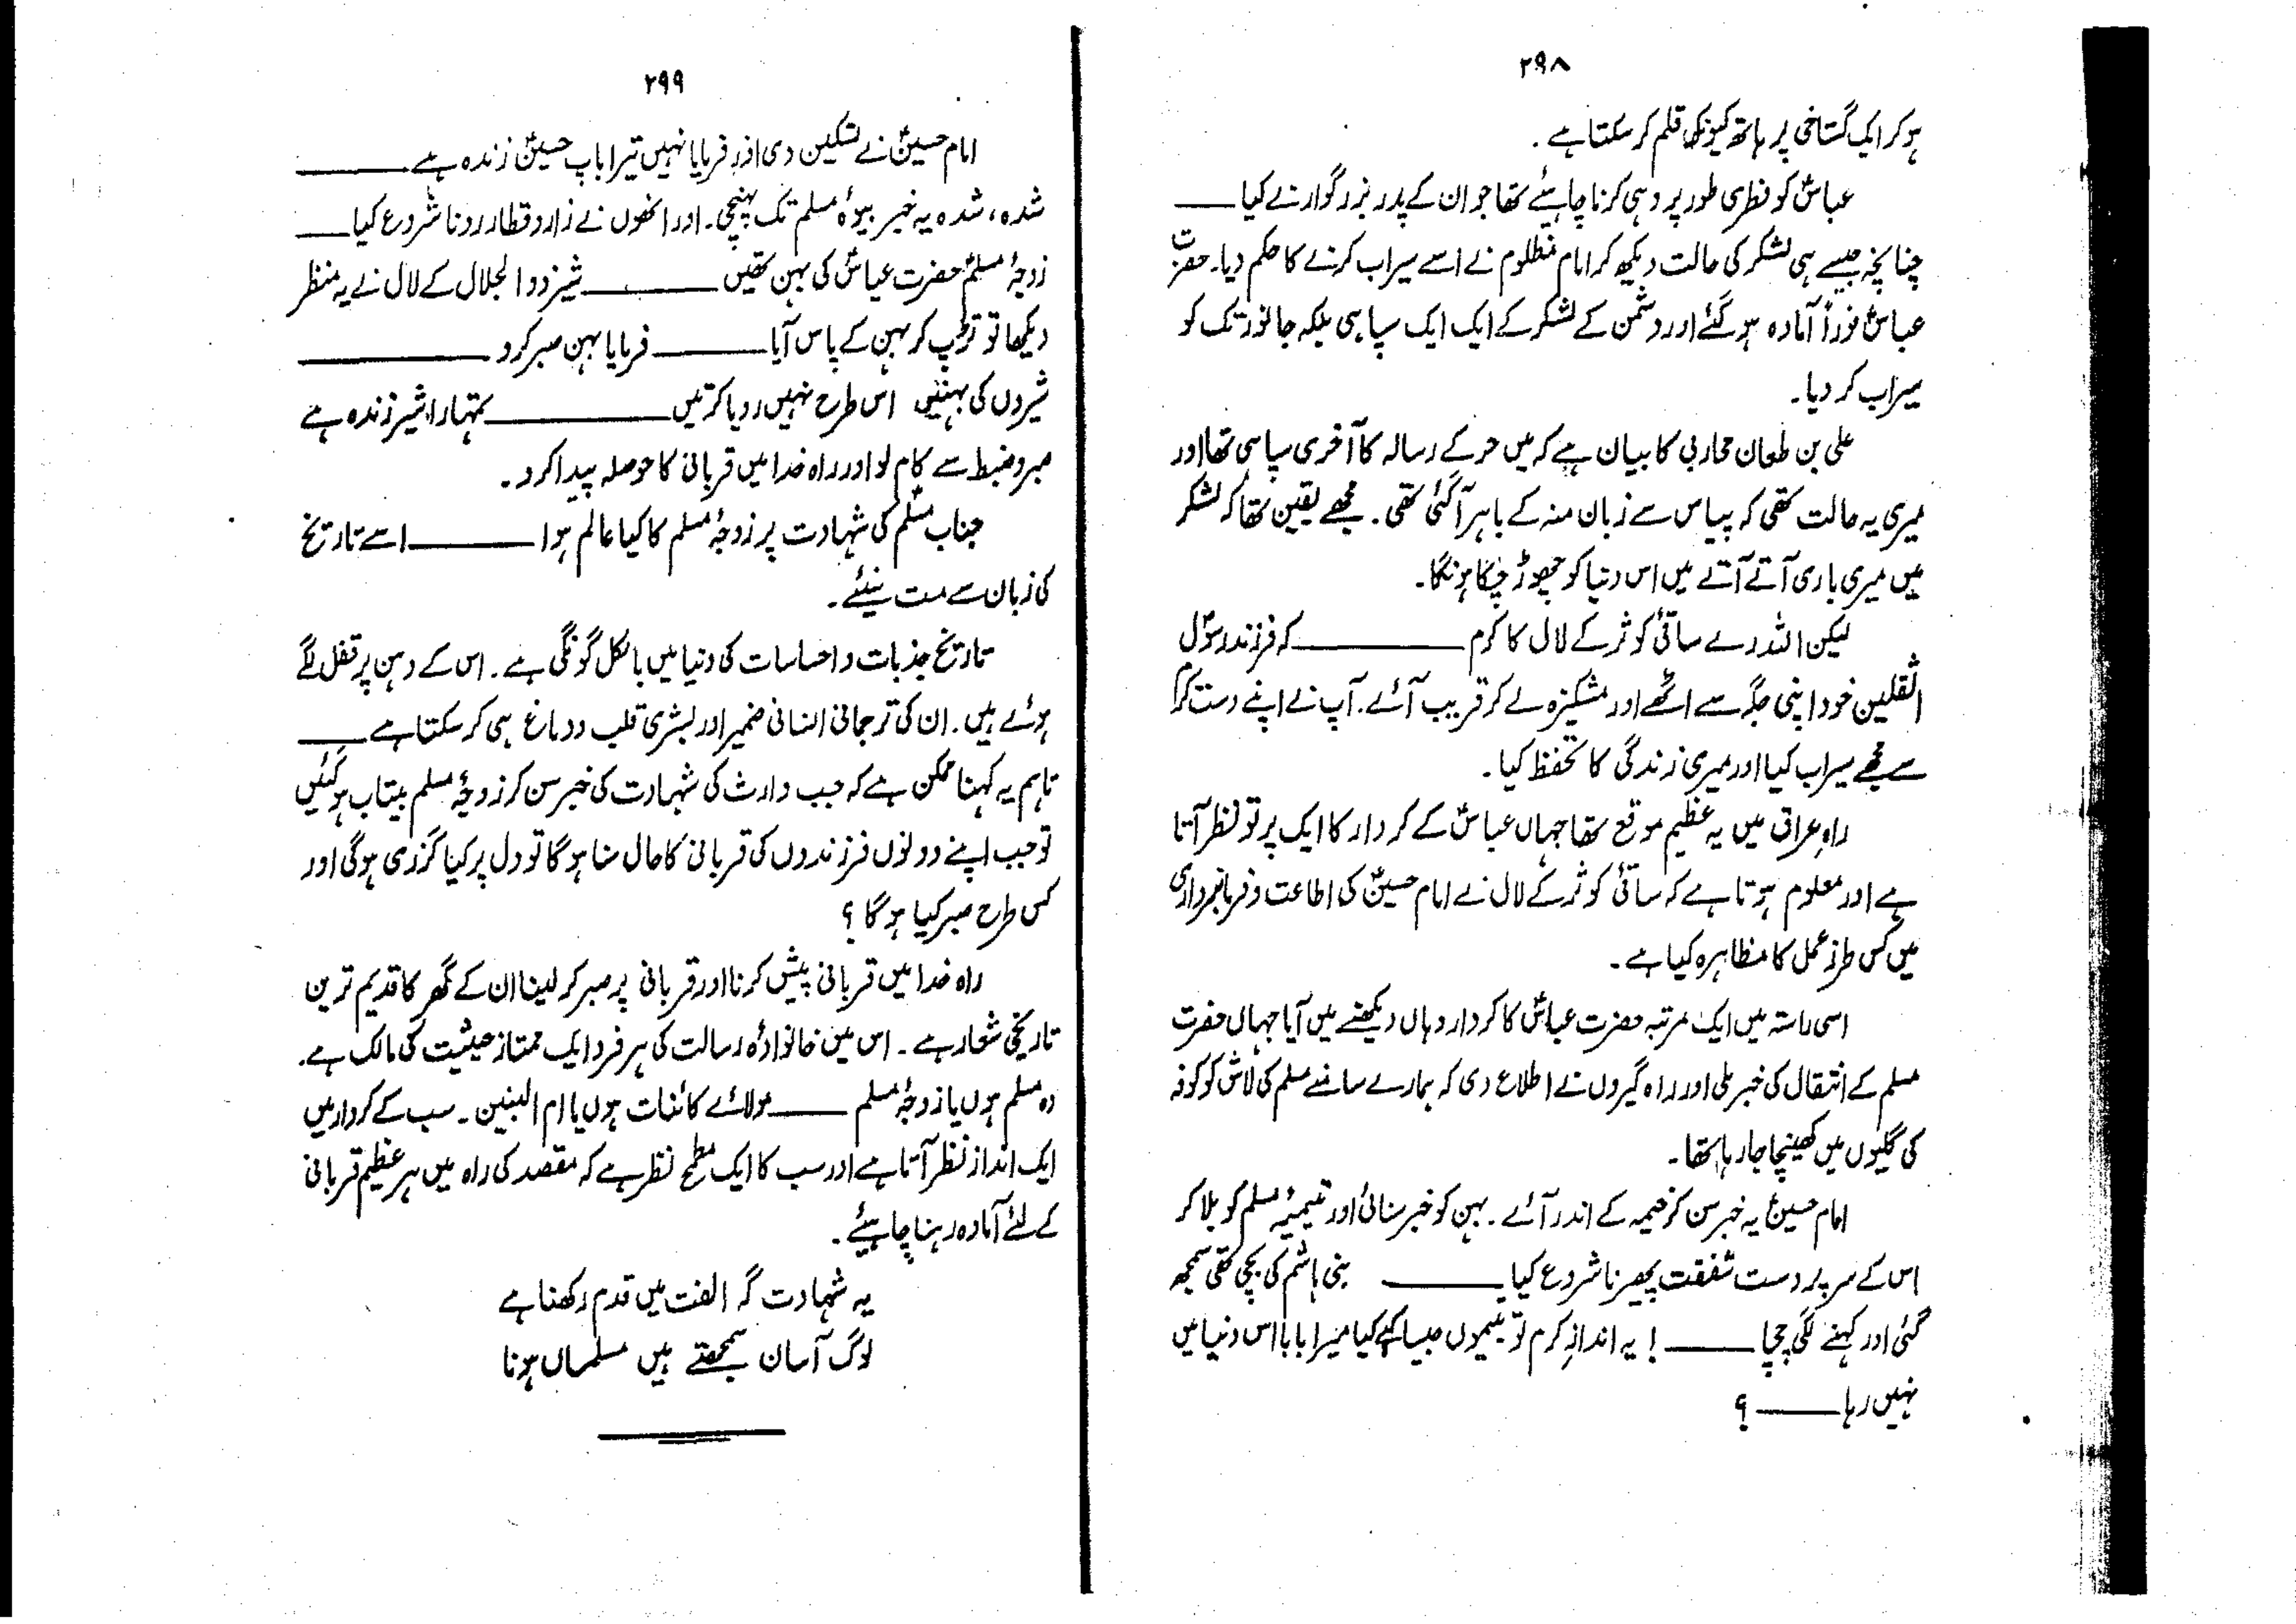 ۲۹۸
ہو کر ایک گستاخی پر ہاتھ کیونکر قلم کر سکتا ہے۔
عباسؑ کو فطری طور پر وہی کرنا چاہیئے تھا جو ان کے پدر بزرگوار نے کیا ——
چنانچہ جیسے ہی لشکر کی حالت دیکھ کر امام مظلوم نے اسے سیراب کرنے کا حکم دیا۔ حضرت
عباسؑ فوراً آمادہ ہو گئے اور دشمن کے لشکر کے ایک ایک سپاہی بلکہ جانور تک کو
سیراب کر دیا۔
علی بن طعان محاربی کا بیان ہے کہ میں حر کے رسالہ کا آخری سپاہی تھا اور
میری یہ حالت تھی کہ پیاس سے زبان منہ کے باہر آ گئی تھی۔ مجھے یقین تھا کہ لشکر
میں میری باری آتے آتے میں اس دنیا کو چھوڑ چکا ہونگا۔
لیکن اللہ رے ساقئ کوثر کے لال کا کرم —— کہ فرزند رسولؐ
الثقلین خود اپنی جگہ سے اٹھے اور مشکیزہ لے کر قریب آئے۔ آپ نے اپنے دست کرم
سے مجھے سیراب کیا اور میری زندگی کا تحفظ کیا۔
راہِ عراق میں یہ عظیم موقع تھا جہاں عباسؑ کے کردار کا ایک پرتو نظر آتا
ہے اور معلوم ہوتا ہے کہ ساقئ کوثر کے لال نے امام حسینؑ کی اطاعت و فرمانبرداری
میں کس طرز عمل کا مظاہرہ کیا ہے۔
اسی راستہ میں ایک مرتبہ حضرت عباسؑ کا کردار وہاں دیکھنے میں آیا جہاں حضرت
مسلم کے انتقال کی خبر ملی اور راہ گیروں نے اطلاع دی کہ ہمارے سامنے مسلم کی لاش کو کوفہ
کی گلیوں میں کھینچا جا رہا تھا۔
امام حسینؑ یہ خبر سن کر خیمہ کے اندر آئے۔ بہن کو خبر سنائی اور یتیمۂ مسلم کو بلا کر
اس کے سر پر دست شفقت پھیرنا شروع کیا —— بنی ہاشم کی بچی تھی سمجھ
گئی اور کہنے لگی چچا —— ! یہ اندازِ کرم تو یتیموں جیسا ہے کیا میرا بابا اس دنیا میں
نہیں رہا —— ؟
۲۹۹
امام حسینؑ نے تسکین دی اور فرمایا نہیں تیرا باپ حسینؑ زندہ ہے ——
شدہ، شدہ یہ خبر بیوۂ مسلم تک پہنچی۔ اور انھوں نے زار و قطار رونا شروع کیا ——
زوجۂ مسلمؑ حضرت عباسؑ کی بہن تھیں —— شیر ذوالجلال کے لال نے یہ منظر
دیکھا تو تڑپ کر بہن کے پاس آیا —— فرمایا بہن صبر کرو ——
شیروں کی بہنیں اس طرح نہیں رویا کرتیں —— تمہارا شیر زندہ ہے
صبر و ضبط سے کام لو اور راہ خدا میں قربانی کا حوصلہ پیدا کرو۔
جناب مسلمؑ کی شہادت پر زوجۂ مسلم کا کیا عالم ہوا —— اسے تاریخ
کی زبان سے مت سنیئے۔
تاریخ جذبات و احساسات کی دنیا میں بالکل گونگی ہے۔ اس کے دہن پر قفل لگے
ہوئے ہیں۔ ان کی ترجمانی انسانی ضمیر اور بشری قلب و دماغ ہی کر سکتا ہے ——
تاہم یہ کہنا ممکن ہے کہ جب وارث کی شہادت کی خبر سن کر زوجۂ مسلم بیتاب ہو گئیں
تو جب اپنے دونوں فرزندوں کی قربانی کا حال سنا ہوگا تو دل پر کیا گزری ہوگی اور
کس طرح صبر کیا ہوگا؟
راہ خدا میں قربانی پیش کرنا اور قربانی پر صبر کر لینا ان کے گھر کا قدیم ترین
تاریخی شعار ہے۔ اس میں خانوادۂ رسالت کی ہر فرد ایک ممتاز حیثیت کی مالک ہے۔
وہ مسلم ہوں یا زوجۂ مسلم —— مولائے کائنات ہوں یا ام البنین۔ سب کے کردار میں
ایک انداز نظر آتا ہے اور سب کا ایک مطمح نظر ہے کہ مقصد کی راہ میں ہر عظیم قربانی
کے لئے آمادہ رہنا چاہیئے۔
یہ شہادت گہ الفت میں قدم رکھنا ہے
لوگ آسان سمجھتے ہیں مسلماں ہونا